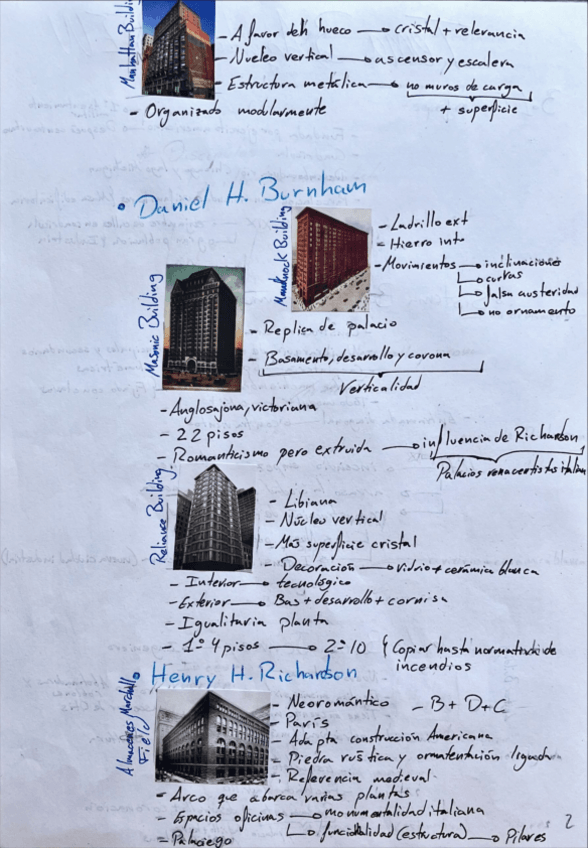 Manhattan Building
- A favor deñ hueco → cristal + relevancia
- Nucleo vertical → ascensor y escalera
- Estructura metálica → no muros de carga
+ superficie
- Organizado modularmente
• Daniel H. Burnham
Monadnock Building
- Ladrillo ext
- Hierro int
- Movimientos → inclinaciones
→ curvas
→ falsa austeridad
→ no ornamento
Masonic Building
- Replica de palacio
- Basamento, desarrollo y corona
Verticalidad
- Anglosajona, victoriana
- 22 pisos
- Romanticismo pero extruida → influencia de Richardson
Palacios renacentistas italian
Reliance Building
- Libiana
- Núcleo vertical
- Más superficie cristal
- Decoración → vidrio + cerámica blanca
- Interior → tecnológico
- Exterior → Bas + desarrollo + cornisa
- Igualitaria planta
- 1º 4 pisos → 2º 10 Copiar hasta normativa de
incendios
• Henry H. Richardson
Almacenes Marshall
Field
- Neoromántico - B + D + C
- París
- Adapta construcción Americana
- Piedra rústica y ornamentación ligada
- Referencia medieval
- Arco que abarca varias plantas
- Espacios oficinas → monumentalidad italiana
→ funcionalidad (estructura) → Pilares
- Palaciego
2